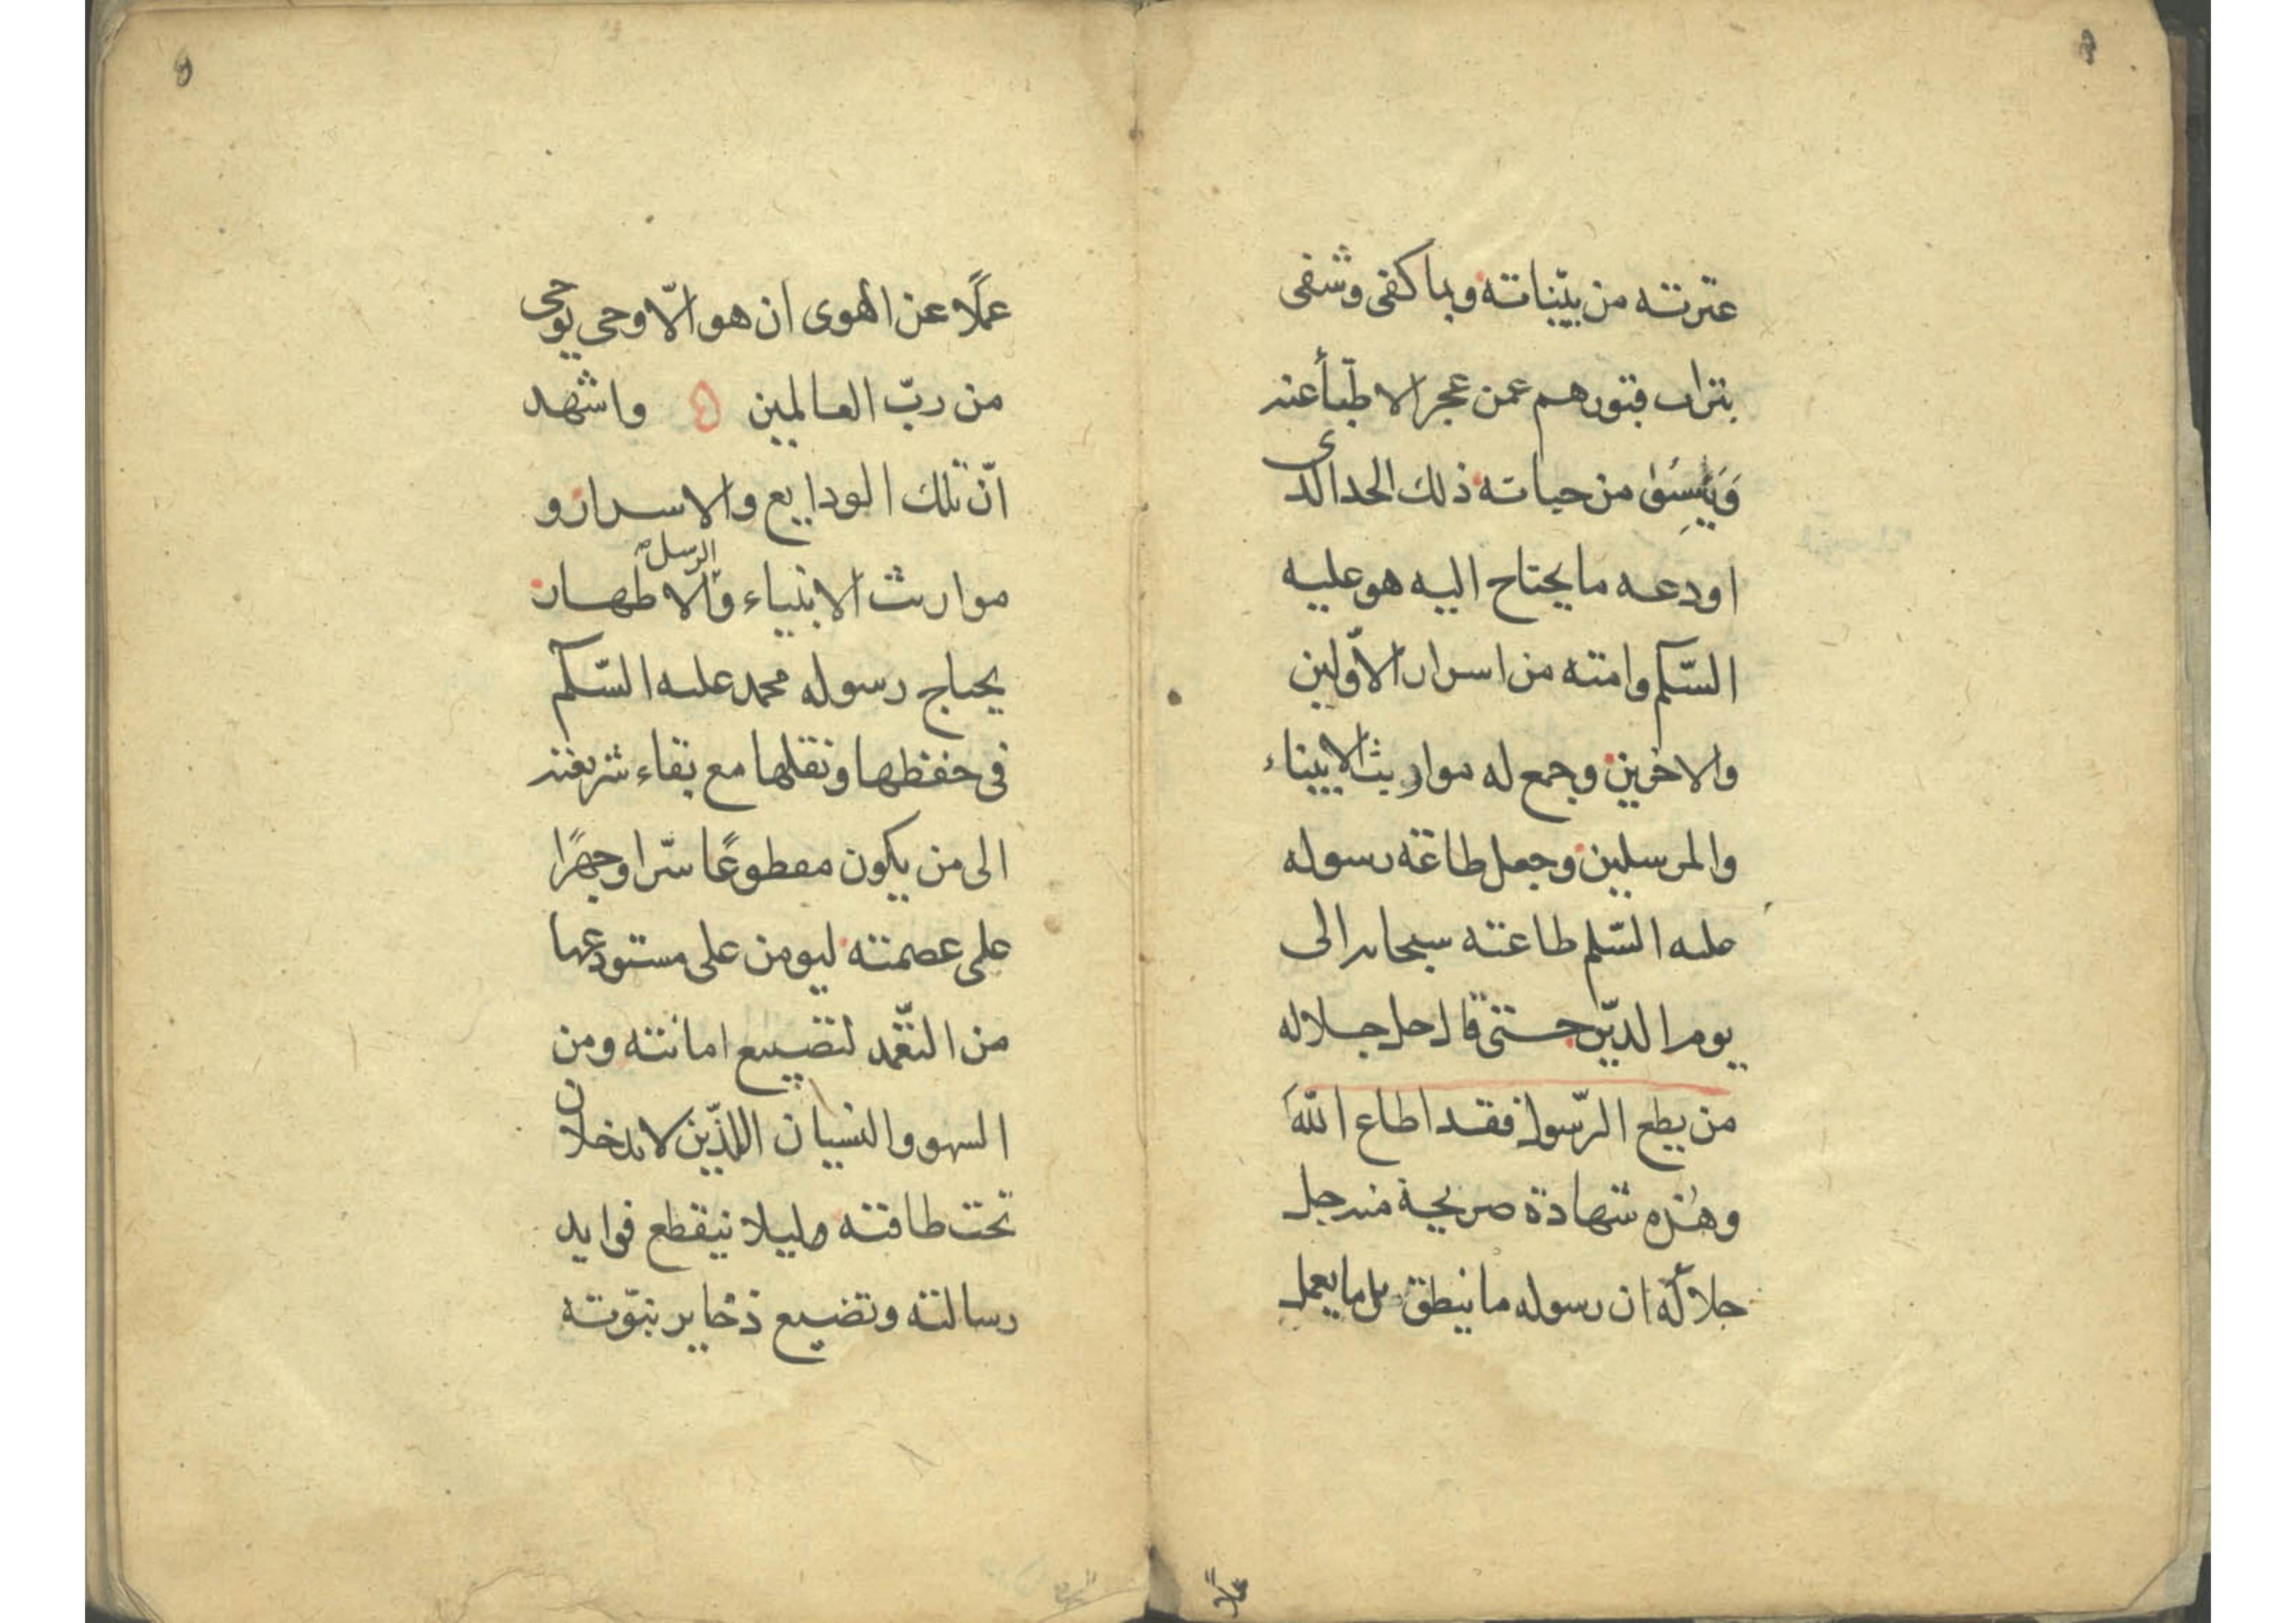 عترته من بيّناته وبما كفى وشفى
بتراب قبورهم عمن عجز الاطبّأ عنه
وَيَئِسُوا من حياته ذلك الحد الذى
اودعه ما يحتاج اليه هو عليه
السّلم وامته من اسرار الاوّلين
والاخرين وجمع له مواريث الانبياء
والمرسلين وجعل طاعة رسوله
عليه السّلم طاعته سبحانه الى
يوم الدّين حتى قال جل جلاله
من يطع الرّسول فقد اطاع اللّه
وهذه شهادة صريحة منه جل
جلاله ان رسوله ما ينطق بل ما يعمل
عملًا
عملًا عن الهوى ان هو الّا وحى يوحى
من ربّ العالمين ه واشهد
انّ تلك الودايع والاسرار و
مواريث الانبياء والرسل والاطهار
يحتاج رسوله محمد عليه السّلم
فى حفظها ونقلها مع بقاء شريعته
الى من يكون مقطوعًا سرّا وجهرًا
على عصمته ليومن على مستودعها
من التعّمد لتضييع امانته ومن
السهو والنسيان اللذّين لا يدخلان
تحت طاقته وليلا ينقطع فوايد
رسالته وتضيع ذخاير نبوّته